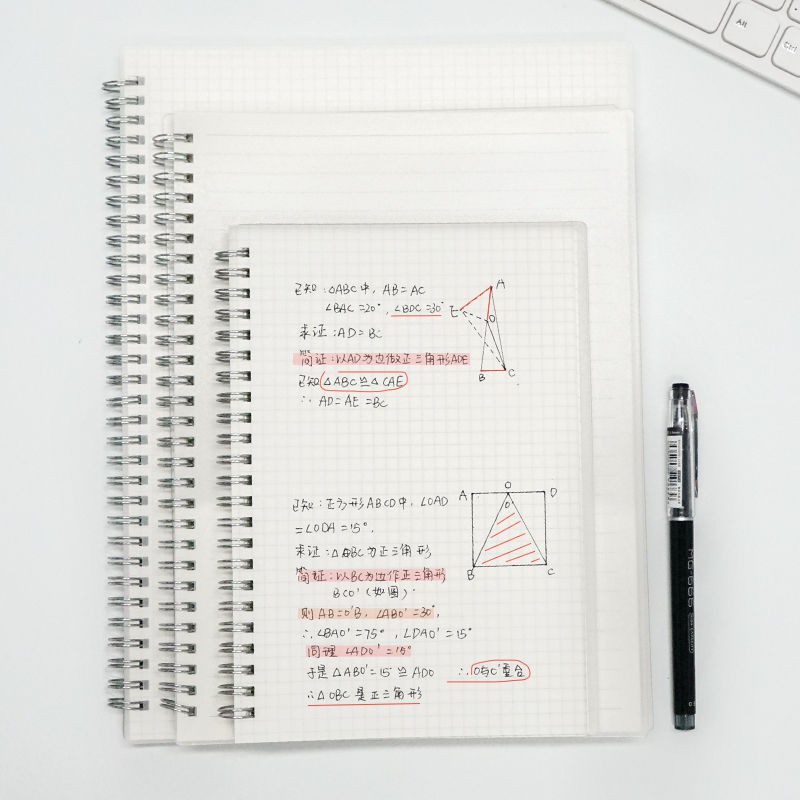 Alt
Ctrl
已知:△ABC中, AB=AC
∠BAC=20°, ∠BDC=30°
求证:AD=BC
简证:以AD为边做正三角形ADE
已知△ABC≌△CAE
∴ AD=AE=BC
A
E
D
B
C
已知:正方形ABCD中, ∠OAD
=∠ODA=15°.
求证:△OBC为正三角形
简证:以BC为边作正三角形
BCO'(如图)
则AB=O'B, ∠ABO'=30°,
∴∠BAO'=75°, ∠DAO'=15°
同理∠ADO'=15°
于是△ABO'=15°≌ADO ∴O与O'重合
∴△OBC是正三角形
A
O
D
O'
B
C
MG-666